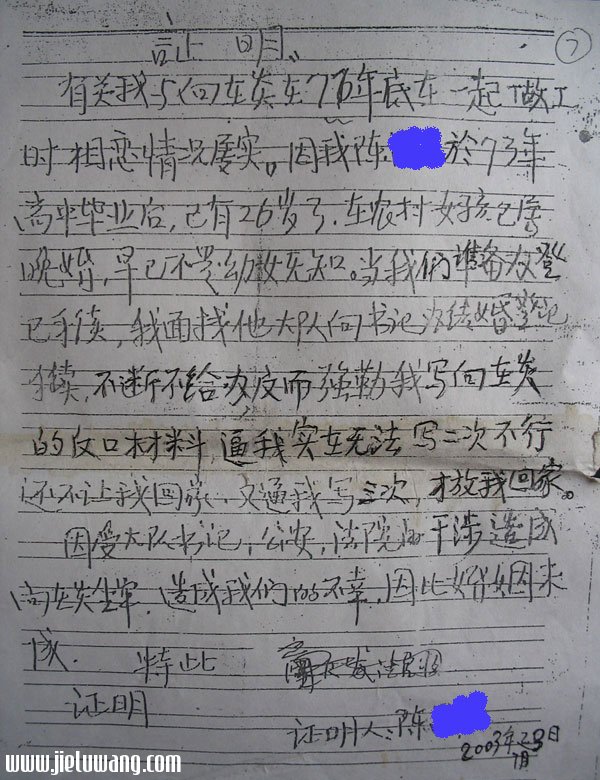 证明
7
有关我与向在炎在76年底在一起做工
时相恋情况属实。因我陈 於73年
高中毕业后,已有26岁了.在农村女孩已属
晚婚,早已不是幼女无知。当我们准备办登
记手续,我面找他大队向书记办结婚登记
手续,不断不给办反而强勒我写向在炎
的反口材料,逼我实在无法写二次不行
还不让我回家.又逼我写三次,才放我回家。
因受大队书记,公安,法院的干涉造成
向在炎坐牢.造成我们的不幸,因此婚姻未
成. 特此
证明
证明人:陈
2003年 日
月
www.jieluwang.com